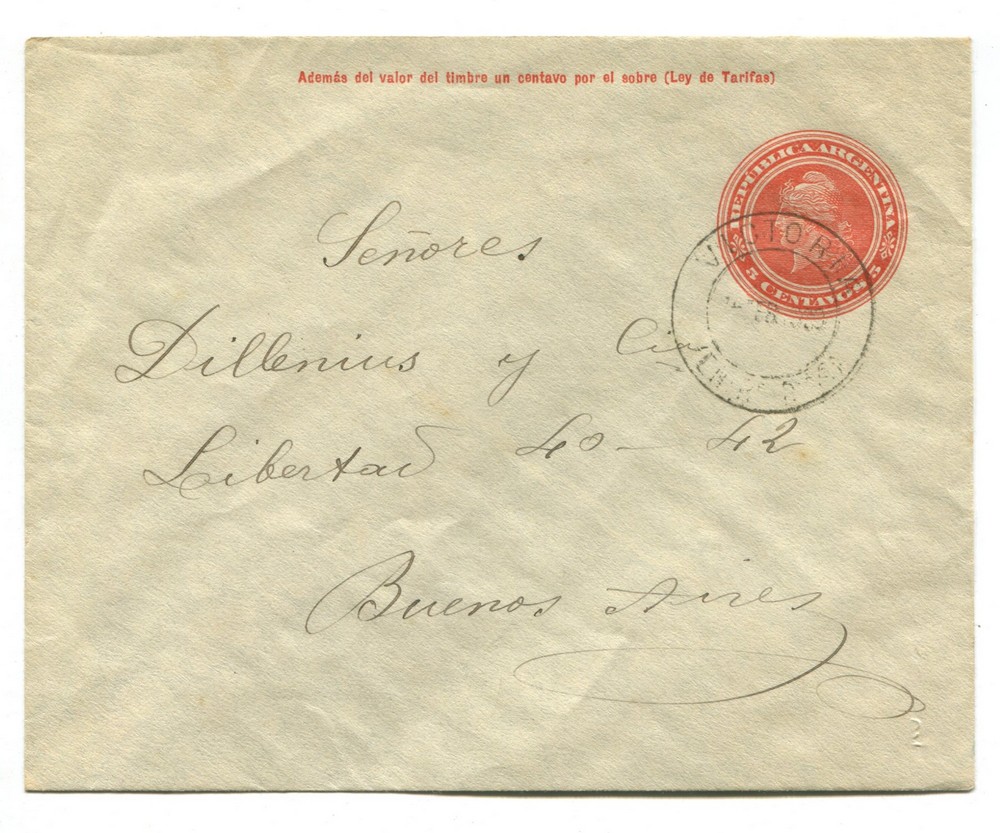 Además del valor del timbre un centavo por el sobre (Ley de Tarifas)
REPÚBLICA ARGENTINA
5 CENTAVOS 5
VICTORIA
Señores
Dillenius y Cia
Libertad 40 - 42
Buenos Aires
2